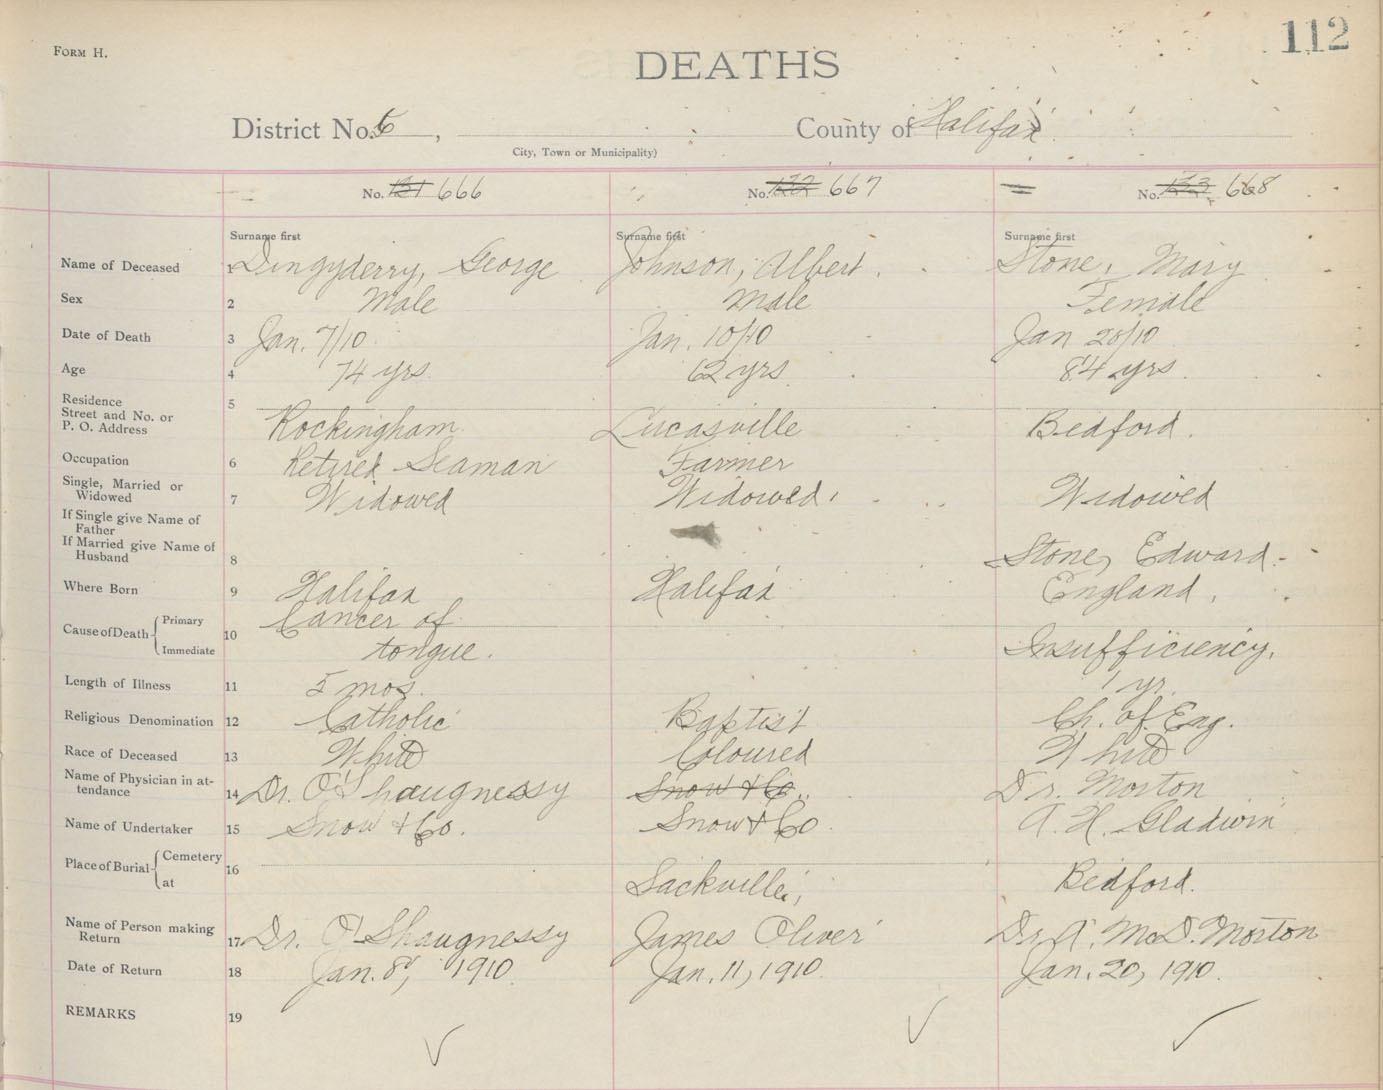 112
FORM H.
DEATHS
District No. 6, County of Halifax
City, Town or Municipality)
No. 131 666 No. 132 667 No. 133 668
Surname first Surname first Surname first
Name of Deceased 1 Dingyderry, George Johnson, Albert. Stone, Mary
Sex 2 Male Male Female
Date of Death 3 Jan. 7/10 Jan. 10/10 Jan 20/10
Age 4 74 yrs. 62 yrs. 84 yrs.
Residence 5
Street and No. or
P. O. Address Rockingham. Lucasville Bedford.
Occupation 6 Retired Seaman Farmer
Single, Married or
Widowed 7 Widowed Widowed. Widowed
If Single give Name of
Father
If Married give Name of
Husband 8 Stone, Edward.
Where Born 9 Halifax Halifax England.
Cause of Death Primary 10 Cancer of
Immediate tongue. Insufficiency.
Length of Illness 11 5 mos. 1 yr.
Religious Denomination 12 Catholic Baptist Ch. of Eng.
Race of Deceased 13 White Coloured White
Name of Physician in at-
tendance 14 Dr. O'Shaugnessy Snow & Co. Dr. Morton
Name of Undertaker 15 Snow & Co. Snow & Co. A. H. Gladwin
Place of Burial Cemetery 16
at Sackville, Bedford.
Name of Person making
Return 17 Dr. O'Shaugnessy James Oliver Dr. A. McD. Morton
Date of Return 18 Jan. 8, 1910 Jan. 11, 1910. Jan. 20, 1910.
REMARKS 19